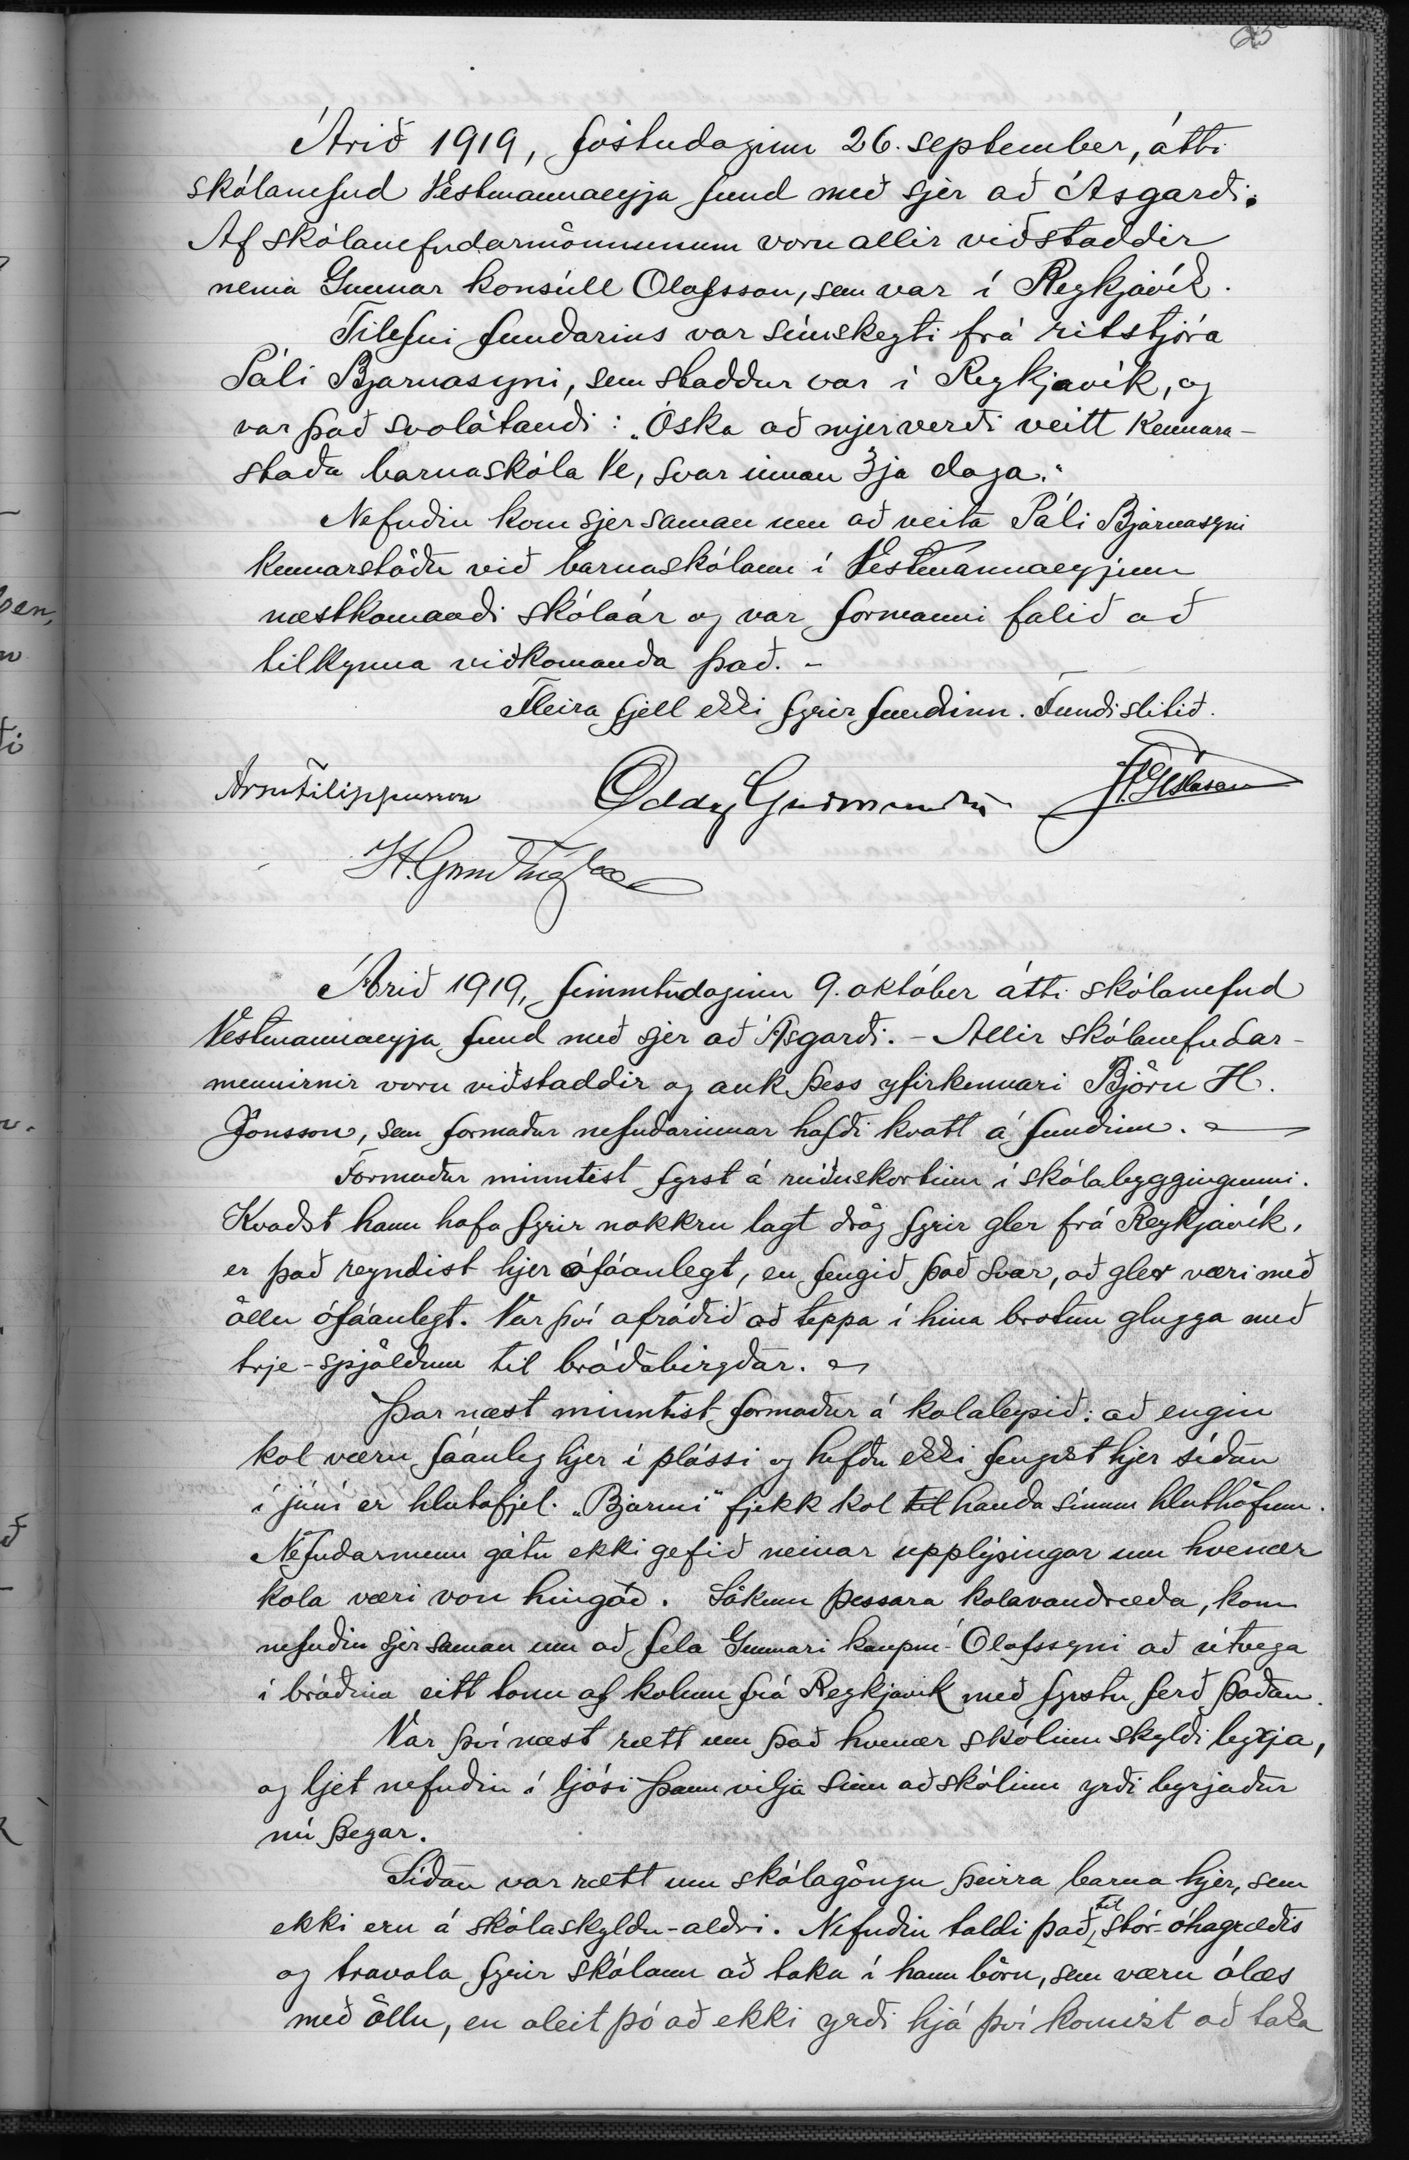 25
Árið 1919, föstudaginn 26. september, átti
skólanefnd Vestmannaeyja fund með sjer að Ásgarði.
Af skólanefndarmönnunum voru allir viðstaddir
nema Gunnar konsúll Ólafsson, sem var í Reykjavík.
Tilefni fundarins var símskeyti frá ritstjóra
Páli Bjarnasyni, sem staddur var í Reykjavík, og
var það svolátandi: „Óska að mjer verði veitt kennara-
staða barnaskóla Ve, svar innan 3ja daga."
Nefndin kom sjer saman um að veita Páli Bjarnasyni
kennarstöðu við barnaskólann í Vestmannaeyjum
næstkomandi skólaár og var formanni falið að
tilkynna viðkomanda það. -
Fleira fjell ekki fyrir fundinn. Fundi slitið.
Árni Filippusson Oddg Guðmundss. J. Gíslason
H. Gunnlaugsson
Árið 1919, fimmtudaginn 9. október átti skólanefnd
Vestmannaeyja fund með sjer að Ásgarði. - Allir skólanefndar-
mennirnir voru viðstaddir og auk þess yfirkennari Björn H.
Jónsson, sem formaður nefndarinnar hafði kvatt á fundinn.
Formaður minntist fyrst á rúðuskortinn í skólabyggingunni.
Kvaðst hann hafa fyrir nokkru lagt drög fyrir gler frá Reykjavík,
er það reyndist hjer ófáanlegt, en fengið það svar, að gler væri með
öllu ófáanlegt. Var því afráðið að teppa í hina brotnu glugga með
trje-spjöldum til bráðabirgðar.
Þar næst minntist formaður á kolaleysið: að engin
kol væru fáanleg hjer í plássi og hefðu ekki fengist hjer síðan
í júní er hlutafjel. „Bjarmi" fjekk kol handa sínum hluthöfum.
Nefndarmenn gátu ekki gefið neinar upplýsingar um hvenær
kola væri von hingað. Sökum þessara kolavandræða, kom
nefndin sjer saman um að fela Gunnari kaupm- Ólafssyni að útvega
í bráðina eitt tonn af kolum frá Reykjavík með fyrstu ferð þaðan.
Var því næst rætt um það hvenær skólinn skyldi byrja,
og ljet nefndin í ljósi þann vilja sinn að skólinn yrði byrjaður
nú þegar.
Síðan var rætt um skólagöngu þeirra barna hjer, sem
ekki eru á skólaskyldu-aldri. Nefndin taldi það til stór-óhagræðis
og travala fyrir skólann að taka í hann börn, sem væru ólæs
með öllu, en áleit þó að ekki yrði hjá því komist að taka